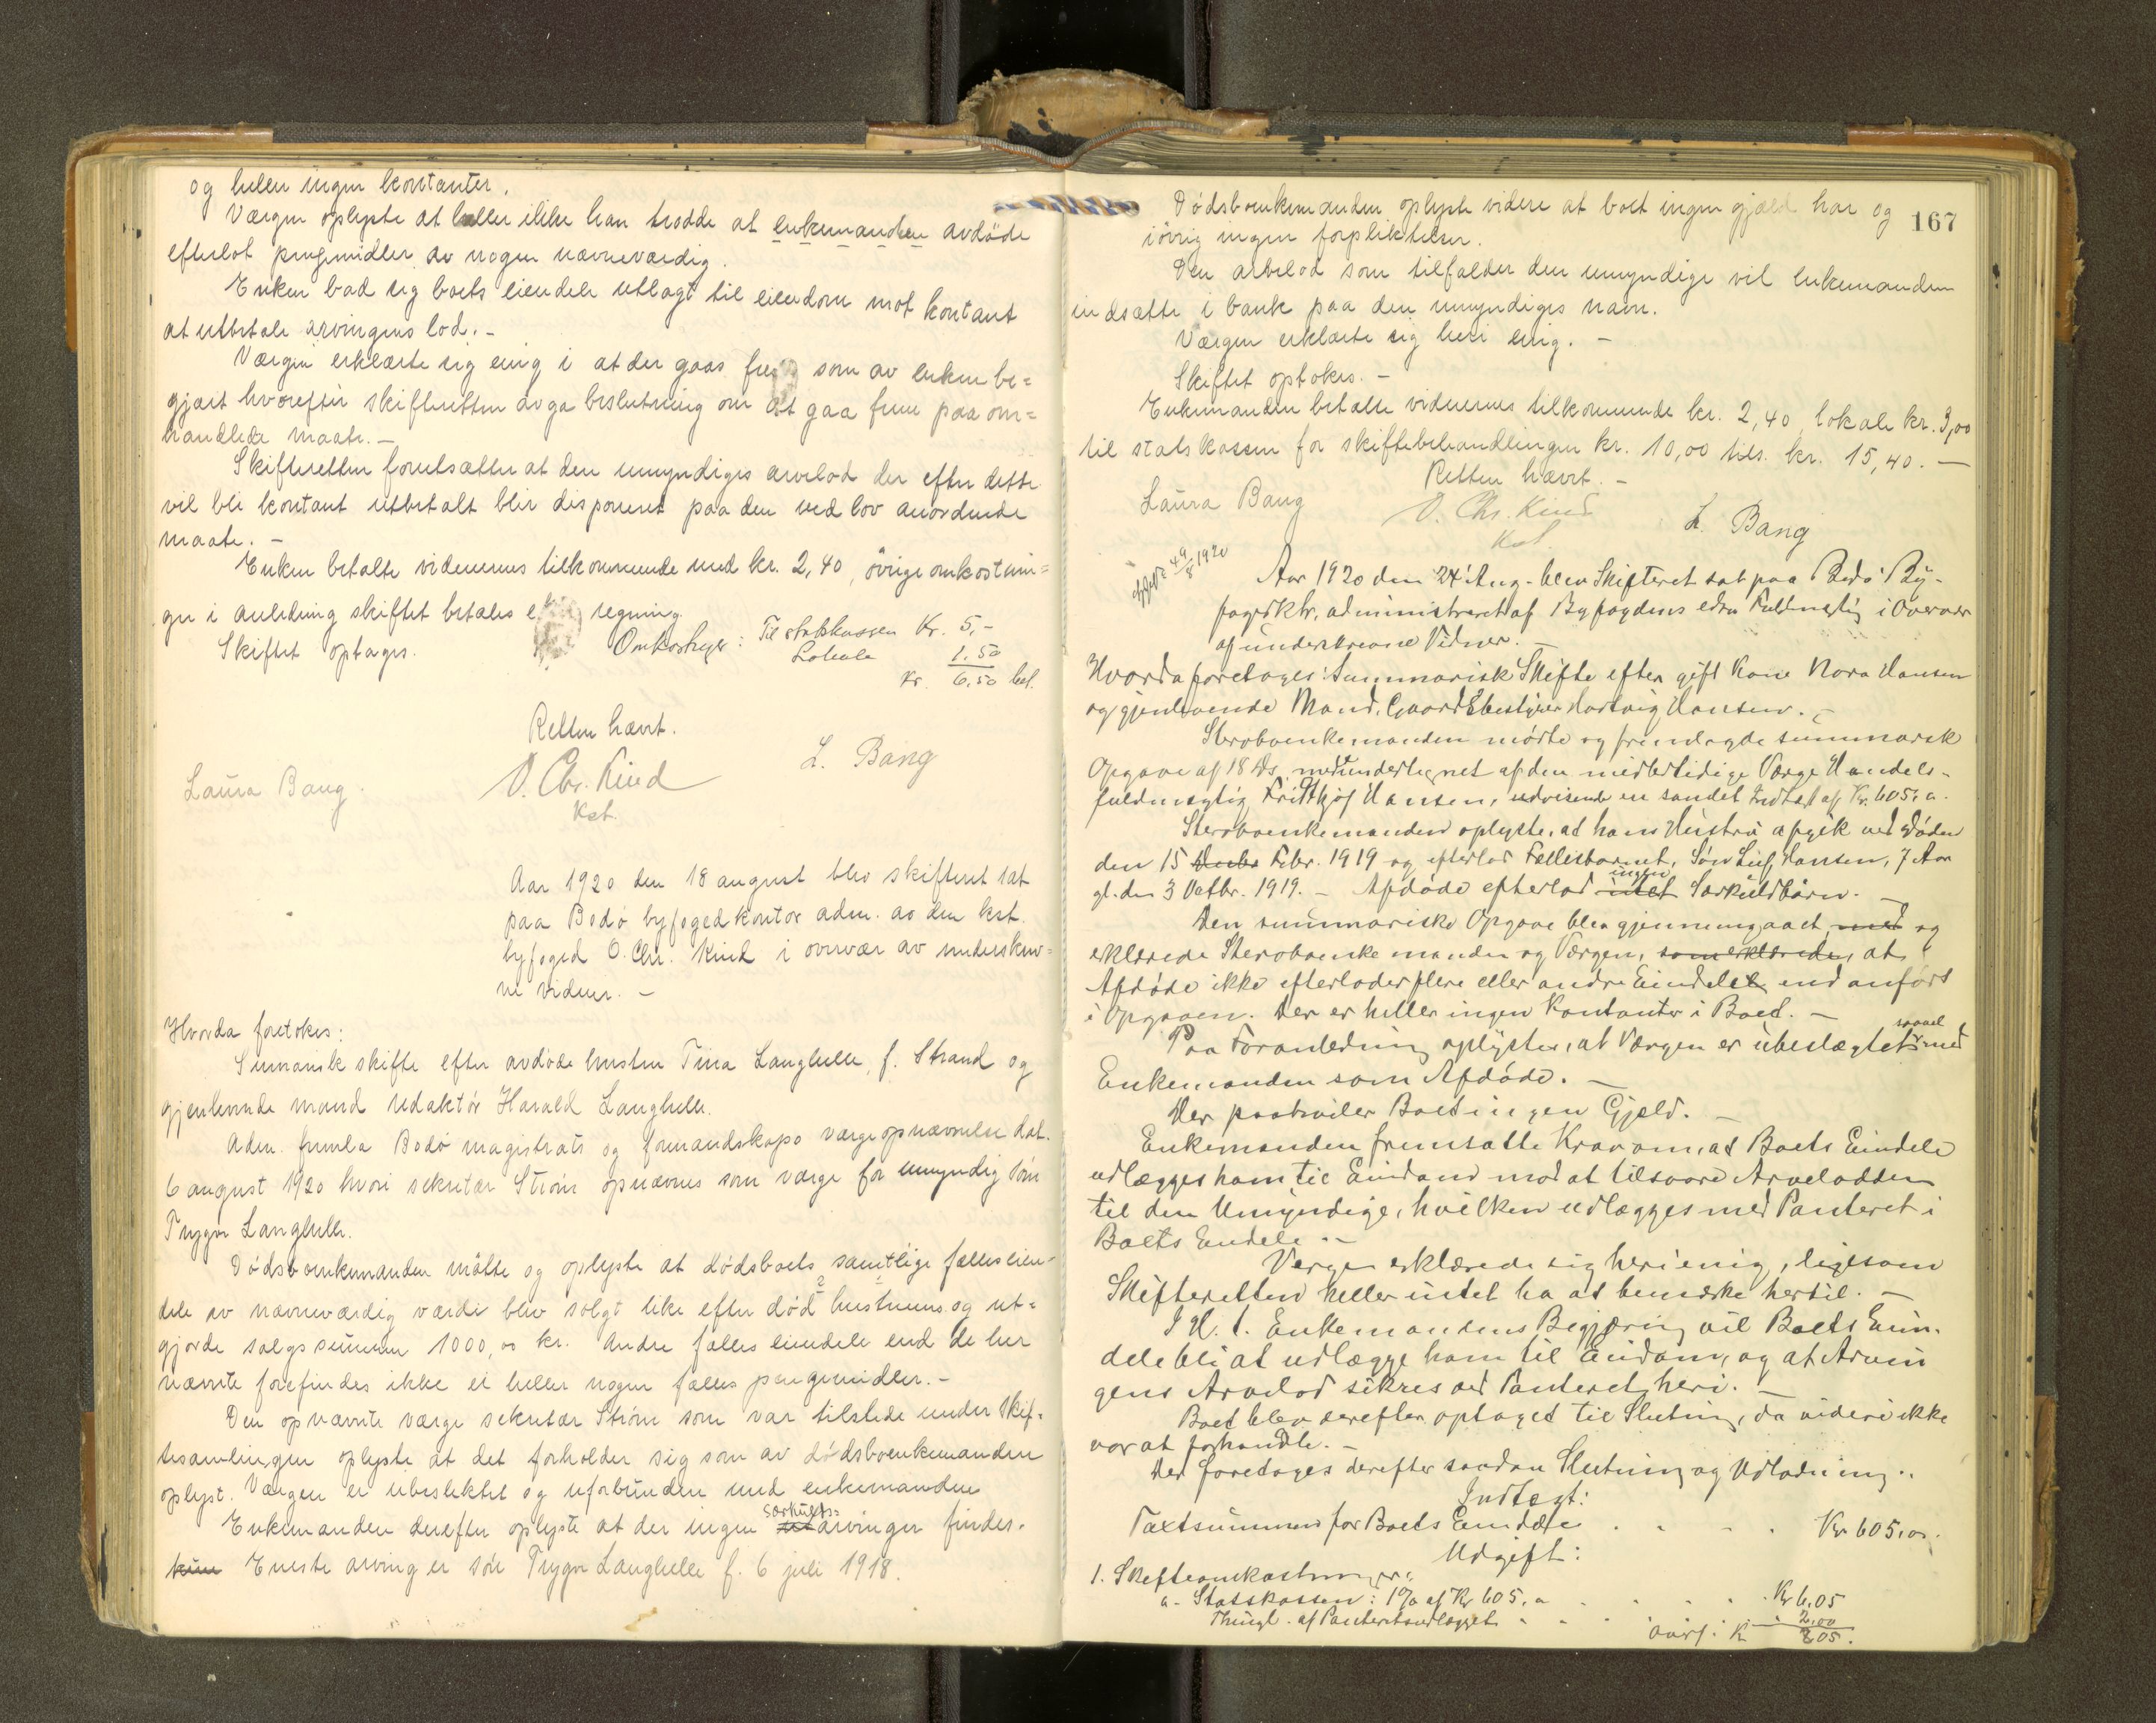 og heller ingen kontanter.
Værgen oplyste at heller ikke han trodde at enkemanden avdöde
efterlot pengemidler av nogen nævneværdig.
Enken bad sig boets eiendele utlagt til eiendom mot kontant
at utbetale arvingens lod. -
Værgen erklærte sig enig i at der gaas frem som av enken be=
gjært hvorefter skifteretten avga beslutning om at gaa frem paa om=
handlede maate. -
Skifteretten forutsætter at den umyndiges arvelod der efter dette
vil bli kontant utbetalt blir disponeret paa den ved lov anordnede
maate. -
Enken betalte vidnernes tilkommende med kr. 2,40, övrige omkostnin=
ger i anledning skiftet betales e regning.
Skiftet optages.
Omkostnger: Til statskassen Kr. 5,-
Lokale 1.50
Kr. 6,50 bet.
Retten hævet.
Laura Bang.
O. Chr. Kind
Kst.
L. Bang
Aar 1920 den 18 august blev skifteret sat
paa Bodø byfogedkontor adm. av den kst.
byfoged O. Chr. Kind i overvær av underskrev=
ne vidner. -
Hvorda foretokes:
Sumarisk skifte efter avdøde hustru Tina Langhelle, f. Strand og
gjenlevende mand redaktör Harald Langhelle.
Adm. fremla Bodø magistrats og formandskaps værgeopnævnelse dat.
6 august 1920 hvori sekretær Ström opnævnes som værge for umyndig sön
Trygve Langhelle.
Dödsboenkemanden mötte og oplyste at dödsboets samtlige fælleseien-
dele av nævneværdig værdi blev solgt like efter död hustruens og ut=
gjorde salgssummen 1000,00 kr. Andre fælles eiendele end de her
nævnte forefindes ikke ei heller nogen fælles pengemidler. -
Den opnævnte værge sekretær Ström som var tilstede under skif=
tesamlingen oplyste at det forholder sig som av dödsboenkemanden
oplyst. Værgen er ubeslektet og uforbunden med enkemanden
Enkemanden derefter oplyste at der ingen særkulds=arvinger findes.
Eneste arving er sön Trygve Langhelle f. 6 juli 1918.
167
Dödsboenkemanden oplyste videre at boet ingen gjæld har og
iövrig ingen forpliktelser.
Den arvelod som tilfalder den umyndige vil enkemanden
indsætte i bank paa den umyndiges navn.
Værgen erklærte sig heri enig. -
Skiftet optokes. -
Enkemanden betalte vidnernes tilkommende kr. 2,40, lokale kr. 3,00
til statskassen for skiftebehandlingen kr. 10,00 tils. kr. 15,40. -
Retten hævet. -
Laura Bang
O. Chr. Kind
Kst.
L. Bang
1920
Aar 1920 den 24' Aug. blev Skifteret sat paa Bodø By-
fogedktr, administreret af Byfogdens edsv Fuldmægtig i Overvær
af underskrevne Vidner. -
Hvorda foretages: Summarisk Skifte efter gift Kone Nora Hansen
og gjenlevende Mand, Gaardsbestyrer Hartvig Hansen. -
Stervboenkemanden mødte og fremlagde summarisk
Opgave af 18 ds. medundertegnet af den midlertidige Værge Handels-
fuldmægtig Fridtjof Hansen, udvisende en samlet Indtægt af Kr. 605,00.
Stervboenkemanden oplyste, at hans Hustru afgik ved Døden
den 15 Febr. 1919 og efterlod Fellesbarnet, Søn Leif Hansen, 7 Aar
gl. den 3 Octbr. 1919. - Afdøde efterlod ingen Særkuldbørn. -
Den summariske Opgave blev gjennemgaaet med og
erklærede Stervboenkemanden og Værgen, som erklærede, at
Afdøde ikke efterlader flere eller andre Eiendele end anført
i Opgaven. Der er heller ingen Kontanter i Boet. -
Paa Foranledning oplystes, at Værgen er ubeslægtet saavel med
Enkemanden som Afdøde. -
Der paahviler Boet ingen Gjæld. -
Enkemanden fremsatte Krav om, at Boets Eiendele
udlægges ham til Eiendom mod at tilsvare Arvelodden
til den Umyndige, hvilken udlægges med Panteret i
Boets Eiendele. -
Vergen erklærede sig heri enig, ligesom
Skifteretten heller intet ha at bemærke hertil. -
I H. t. Enkemandens Begjæring vil Boets Eien-
dele bli at udlægge ham til Eiendom, og at Arvin
gens Arvelod sikres ved Panteret heri. -
Boet blev derefter optaget til Slutning, da videre ikke
var at forhandle. -
Der foretages derefter saadan Slutning og Udlodning..
Indtægt:
Taxtsummen for Boets Eiendele . . . . Kr 605,00.
Udgift:
1. Skifteomkostninger:
a- Statskassen: 1% af Kr 605.00 . . . . Kr 6.05
Thingl. af Panteretsudlægget . . . . 2,00
Overf. Kr 8,05.